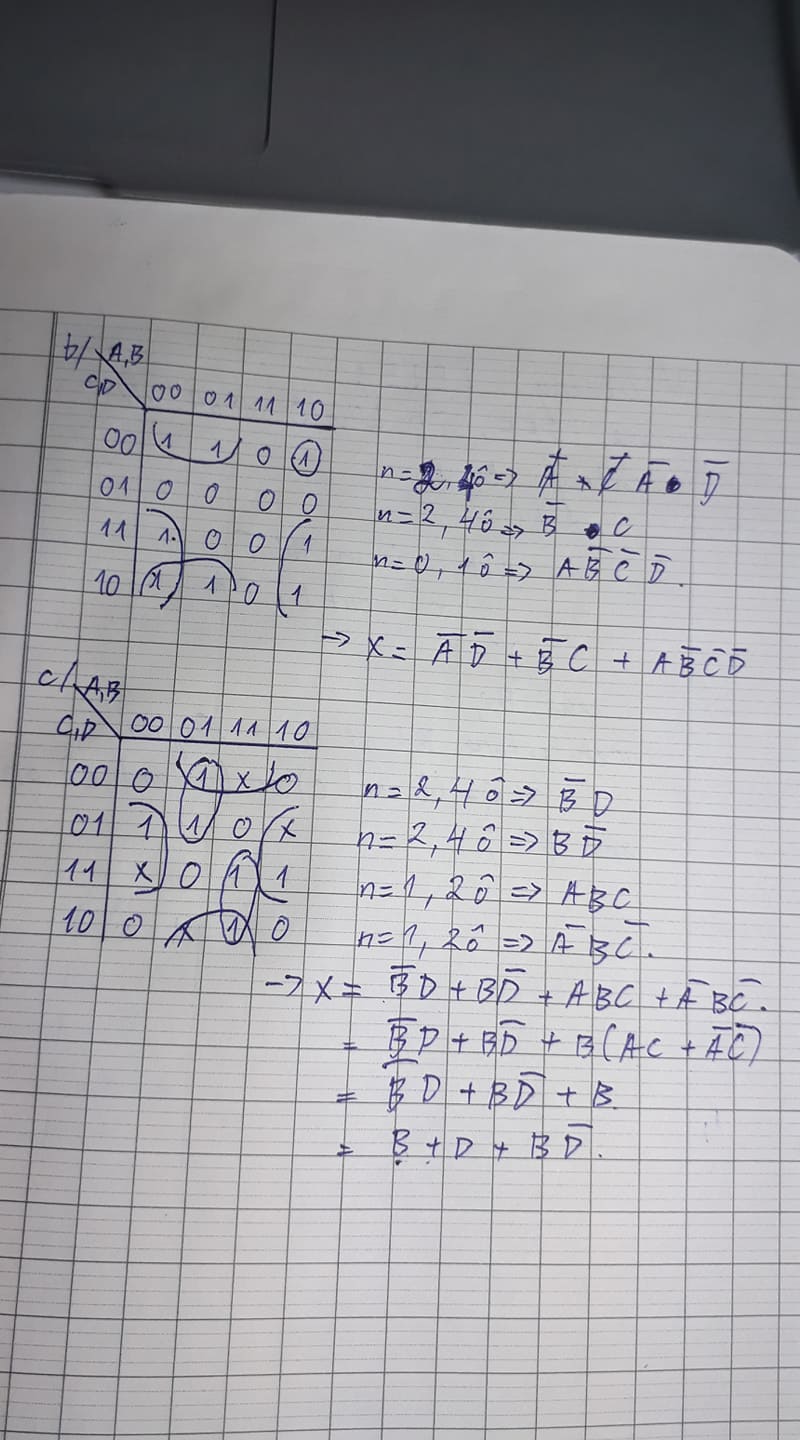 b/ A,B
C,D 00 01 11 10
00 1 1 0 1
01 0 0 0 0
11 1 0 0 1
10 1 1 0 1
n=2, 4ô => A̅ • D̅
n=2, 4ô => B̅ • C
n=0, 1ô => A B̅ C̅ D̅.
→ X = A̅ D̅ + B̅ C + A B̅ C̅ D̅
c/ A,B
C,D 00 01 11 10
00 0 1 x 0
01 1 1 0 x
11 x 0 1 1
10 0 x 1 0
n=2, 4ô => B̅ D
n=2, 4ô => B D̅
n=1, 2ô => A B C
n=1, 2ô => A̅ B C̅.
→ X = B̅ D + B D̅ + A B C + A̅ B C̅.
= B̅ D + B D̅ + B (A C + A̅ C̅)
= B̅ D + B D̅ + B.
= B + D + B D̅.